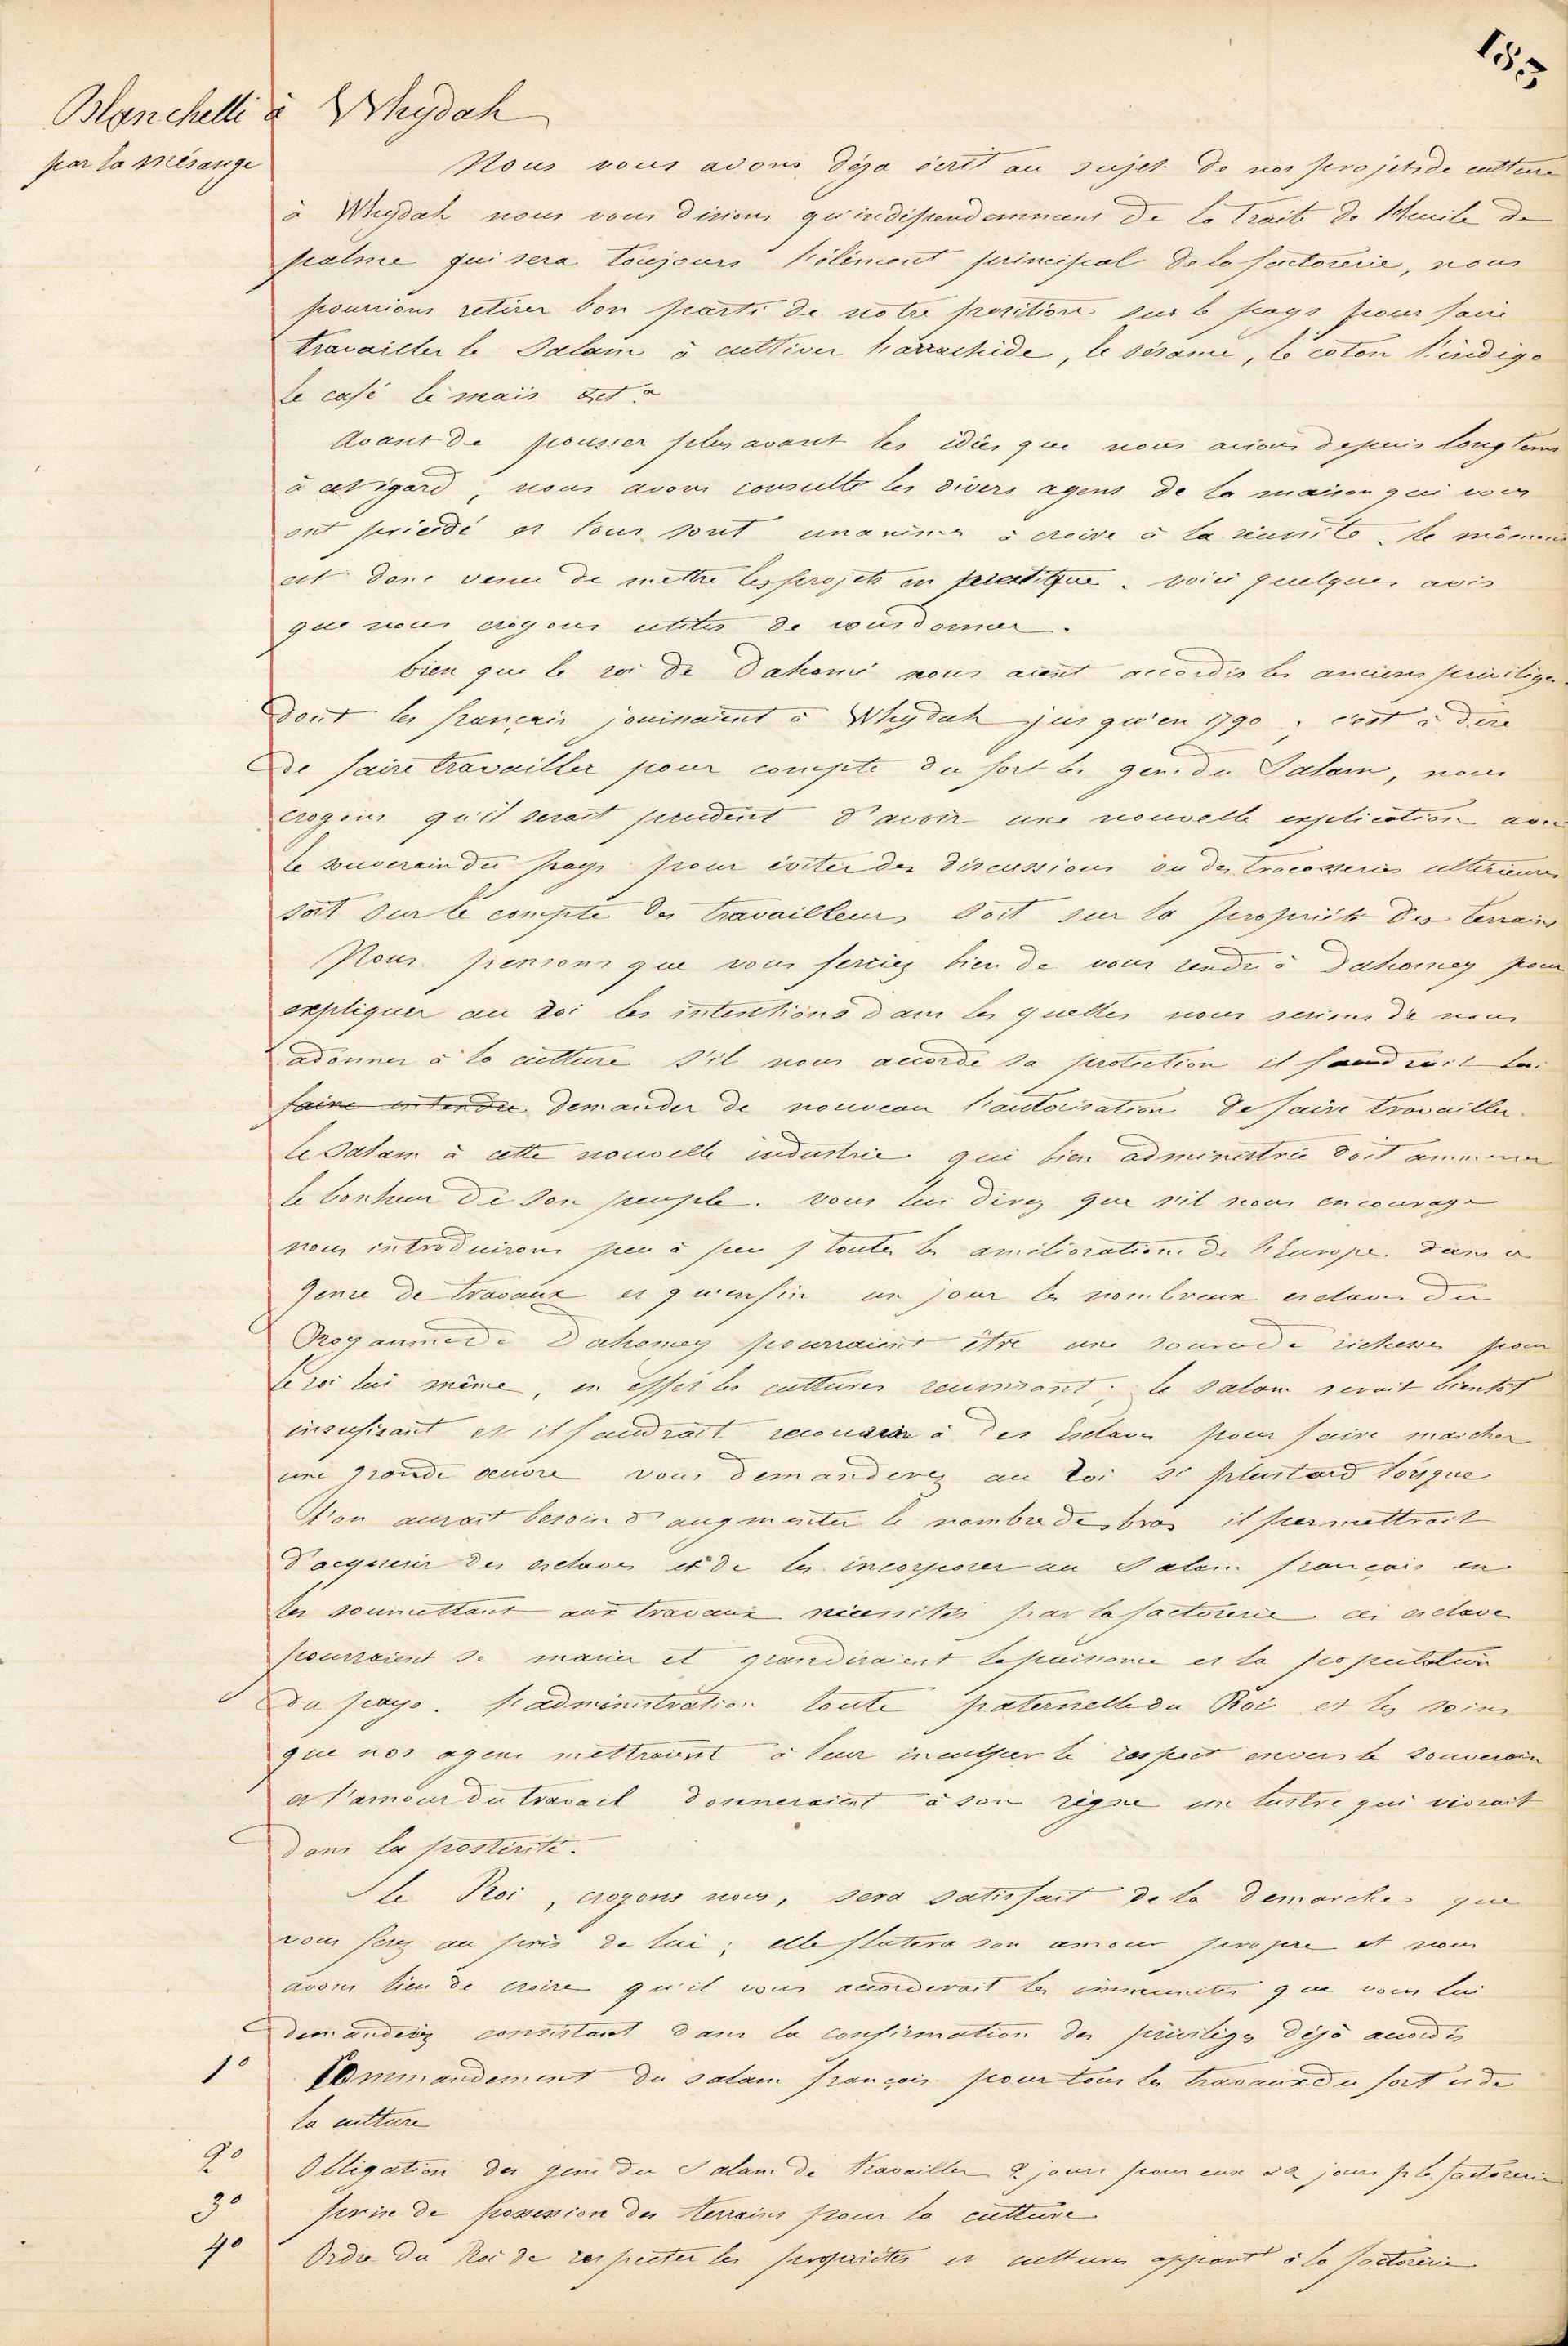 183
Blanchelli à Whydah
par la mésange
Nous vous avons déja écrit au sujet de nos projets de culture
à Whydah nous vous disions qu'indépendamment de la traite de l'huile de
palme qui sera toujours l'élément principal de la factorerie, nous
pourrions retirer bon parti de notre position sur le pays pour faire
travailler le Salam à cultiver l'arrachide, le sésame, le coton l'indigo
le café le maïs etc a
Avant de pousser plus avant les idées que nous avions depuis longtems
à cet égard, nous avons consulté les divers agens de la maison qui vous
ont précédé et tous sont unanimes à croire à la réussite. le moment
est donc venu de mettre les projets en pratique. voici quelques avis
que nous croyons utiles de vous donner.
bien que le roi de Dahomé nous aient accordés les anciens privilèges
dont les français jouissaient à Whydah jusqu'en 1790, c'est à dire
de faire travailler pour compte du fort les gens du Salam, nous
croyons qu'il serait prudent d'avoir une nouvelle explication avec
le souverain du pays pour éviter des discussions ou des tracasseries ultérieures
soit sur le compte des travailleurs soit sur la propriété des terrains
Nous pensons que vous feriez bien de vous rendre à Dahomey pour
expliquer au roi les intentions dans les quelles nous serions de nous
adonner à la culture s'il nous accorde sa protection il faudrait lui
faire entendre demander de nouveau l'autorisation de faire travailler
le Salam à cette nouvelle industrie qui bien administrée doit ammener
le bonheur de son peuple. vous lui direz que s'il nous encourage
nous introduirons peu à peu toutes les améliorations de l'Europe dans ce
genre de travaux et qu'enfin un jour les nombreux esclaves du
Royaume de Dahomey pourraient être une source de richesses pour
le roi lui même, en effet les cultures reussissant, le salam serait bientot
insufisant et il faudrait recourir à des Esclaves pour faire marcher
une grande œuvre vous demanderez au roi si plustard lorsque
l'on aurait besoin d'augmenter le nombre des bras il permettrait
d'acquerir des esclaves et de les incorporer au Salam français en
les soumettant aux travaux nécessités par la factorerie ces esclaves
pourraient se marier et grandiraient la puissance et la population
du pays. l'administration toute paternelle du Roi et les soins
que nos agens mettraient à leur inculquer le respect envers le souverain
et l'amour du travail donneraient à son règne un lustre qui vivrait
dans la postérité.
le Roi, croyons nous, sera satisfait de la demarche que
vous ferez au près de lui; elle flatera son amour propre et nous
avons lieu de croire qu'il vous accorderait les immunités que vous lui
demanderez consistant dans la confirmation des privilèges déjà accordés
1° Commandement du salam français pour tous les travaux du fort et de
la culture
2° Obligation des gens du Salam de travailler 2 jours pour eux et 2 jours pr la factorerie
3° prise de possession des terrains pour la culture
4° Ordre du Roi de respecter les propriétés et cultures appartt à la factorerie